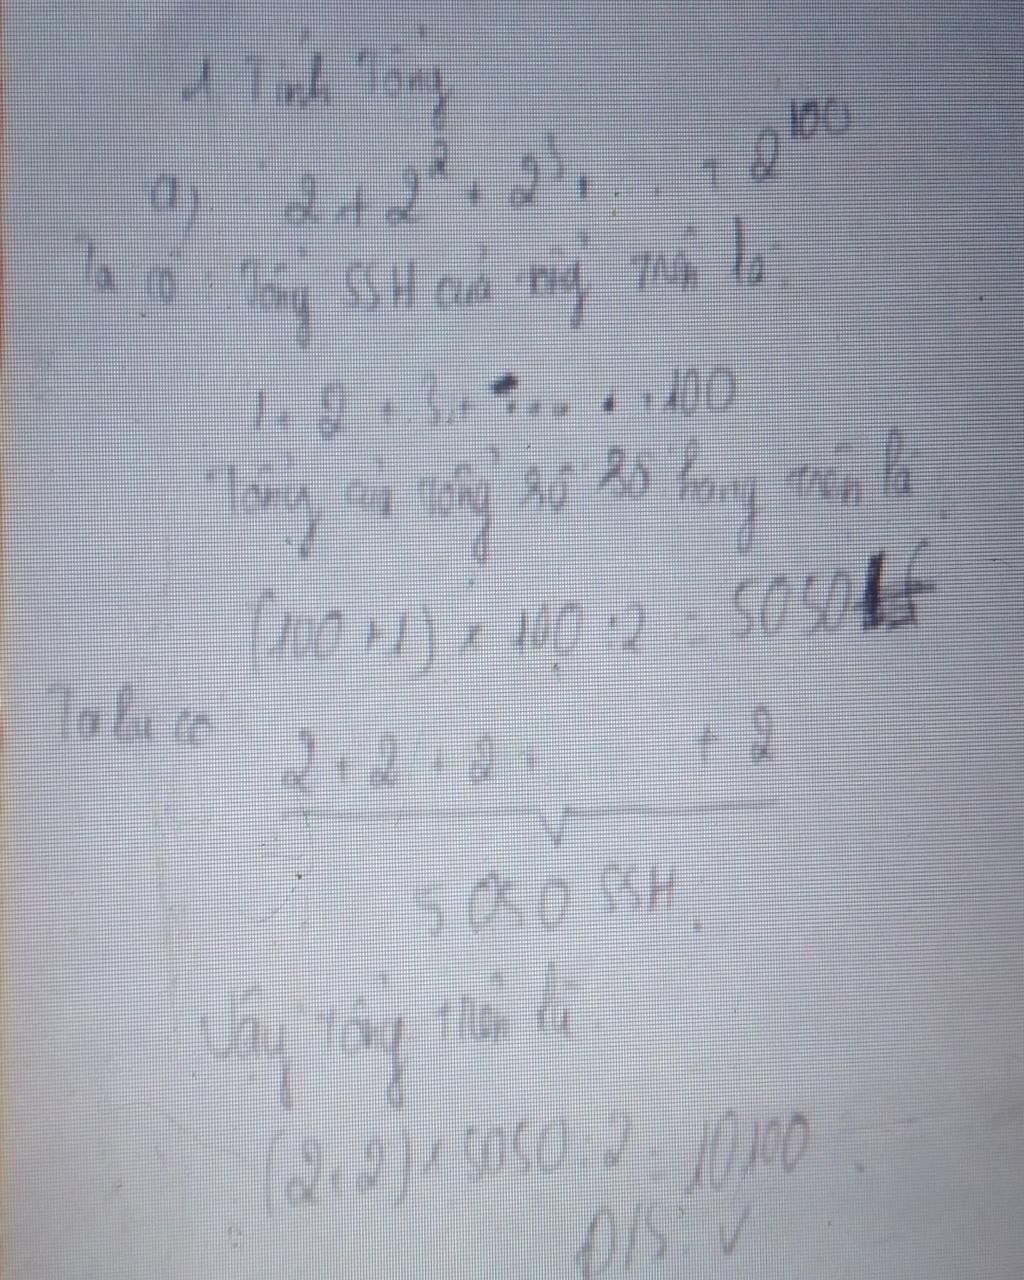 1 Tính Tổng
a) 2 + 2² + 2³ + ... + 2¹⁰⁰
Ta có: Tổng SSH của tổng trên là:
1 + 2 + 3 + .... + 100
Tổng của tổng số số hạng trên là
(100 + 1) × 100 : 2 = 5050
Ta lại có
2 + 2 + 2 + + 2
5050 SSH.
Vậy tổng trên là
(2 + 2) × 5050 : 2 = 10100
Đ/S: V